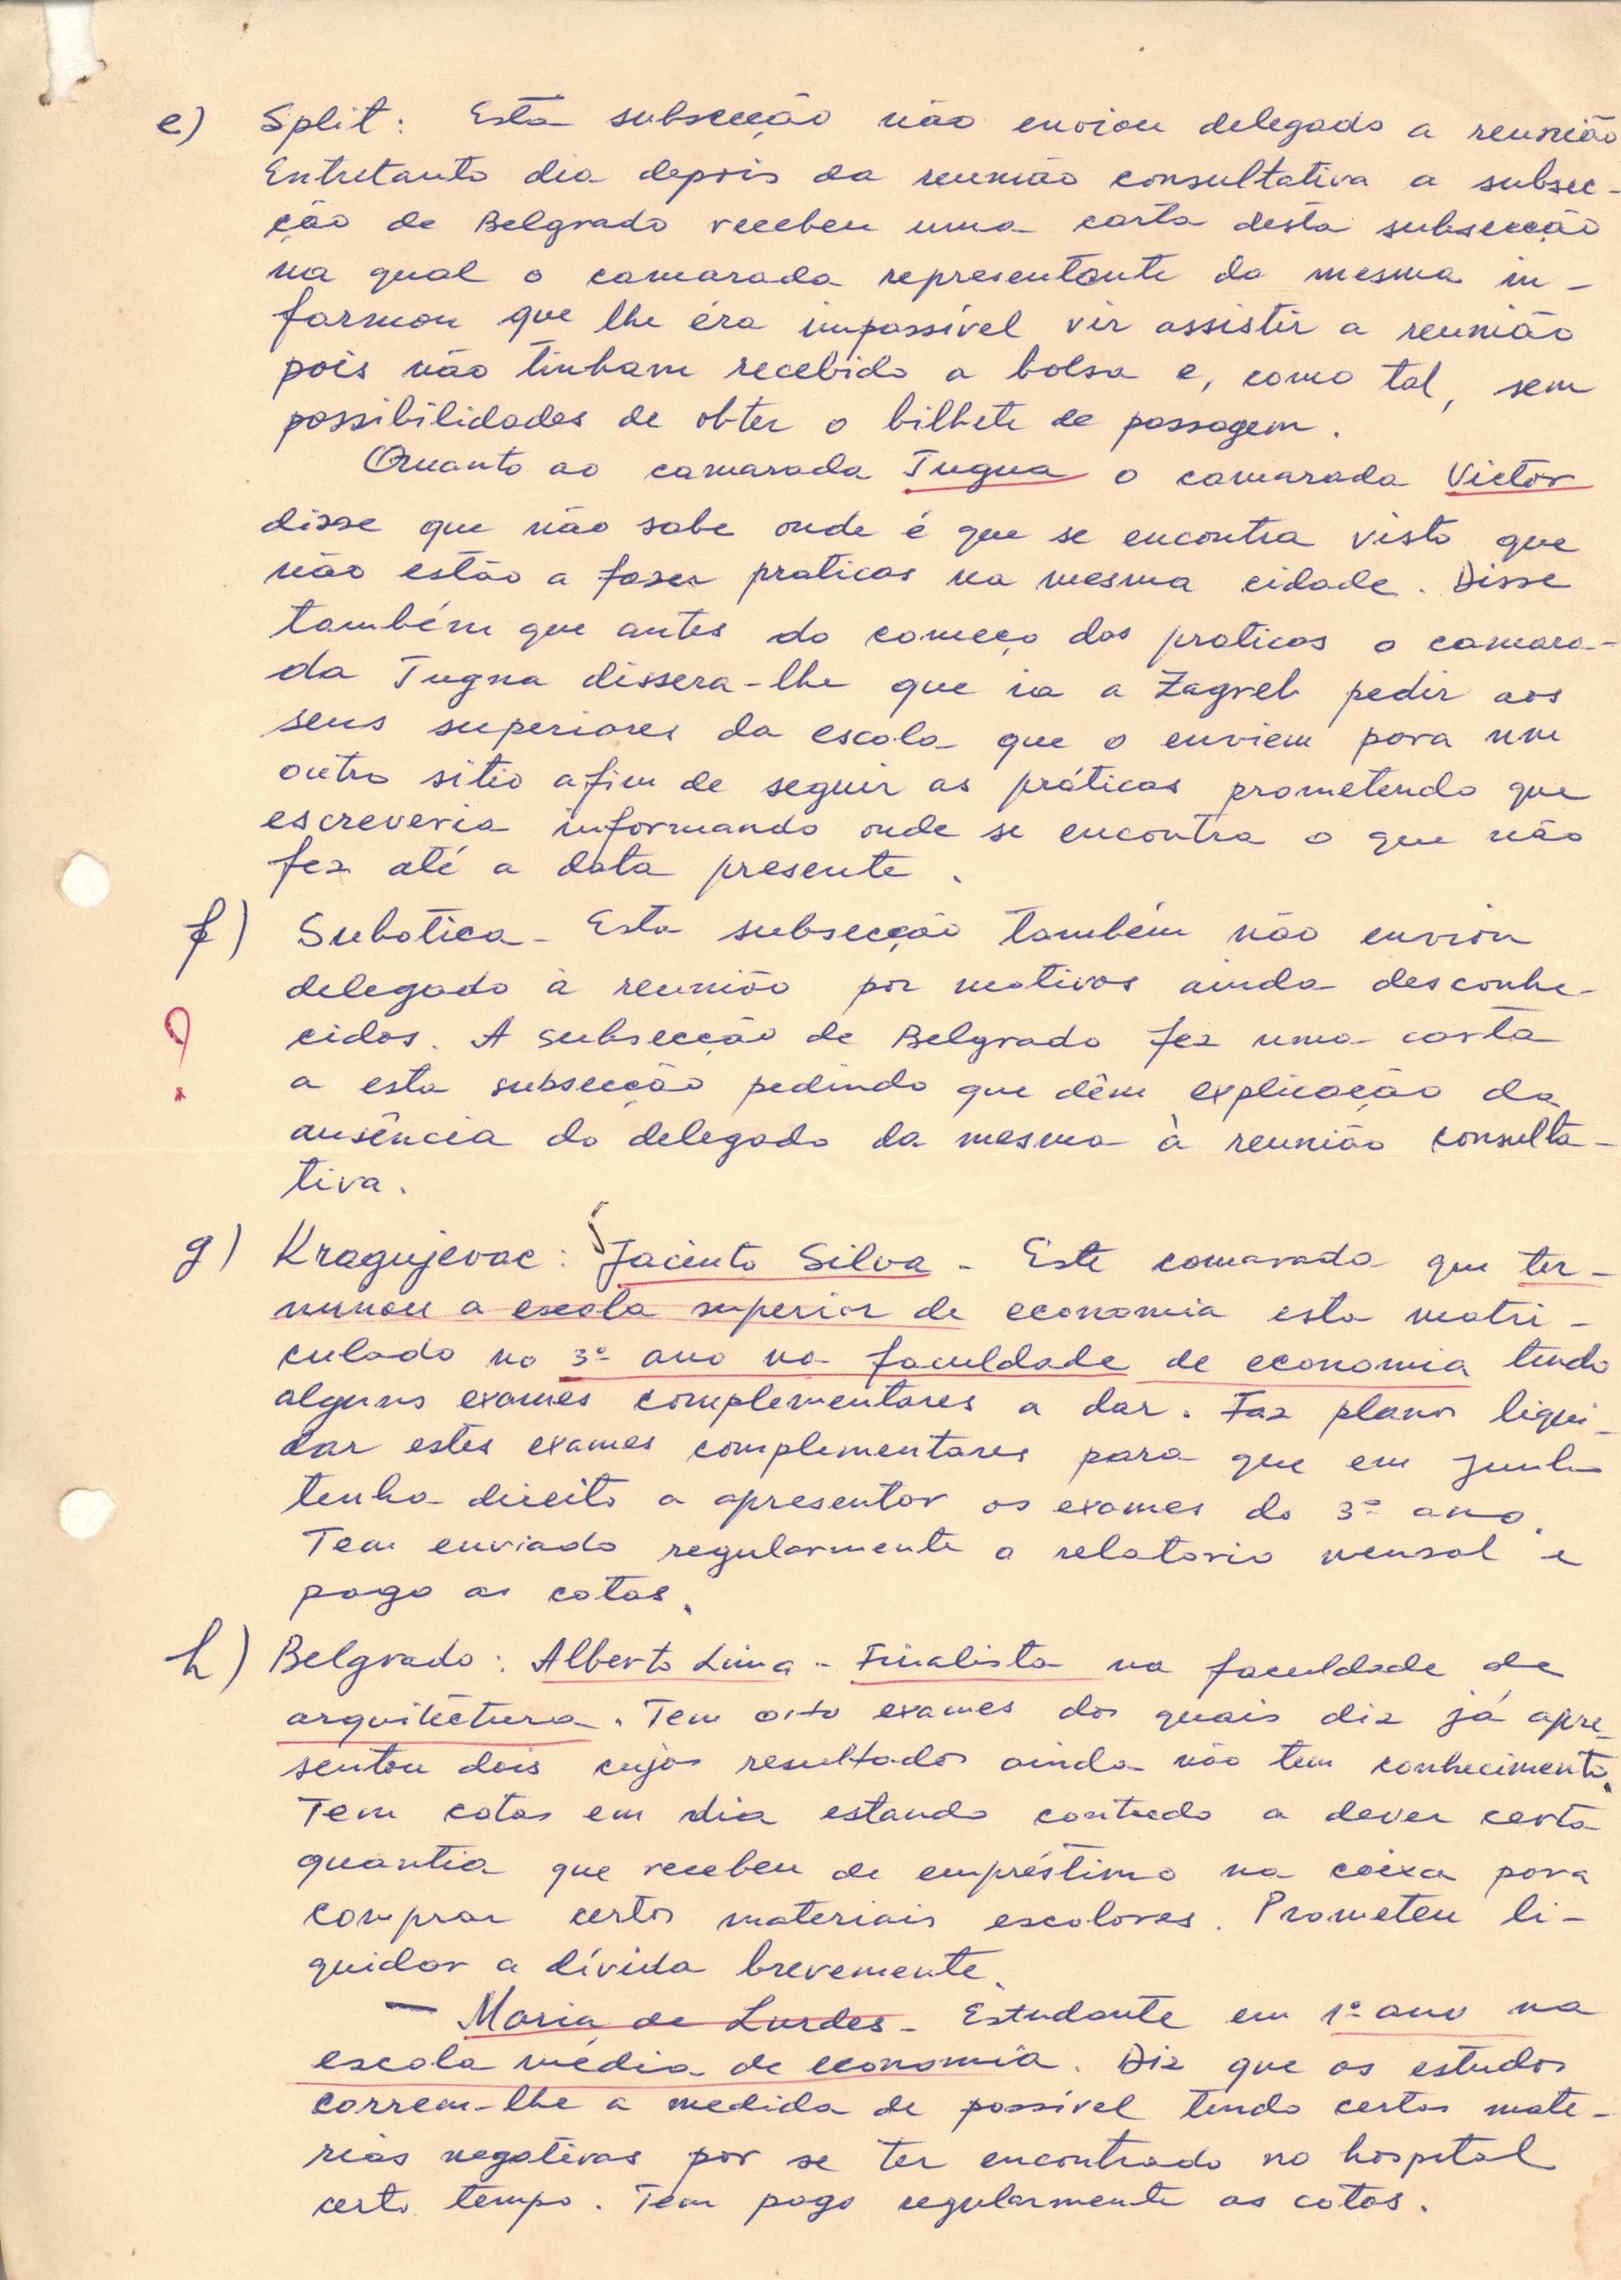 e) Split: Esta subsecção não enviou delegado a reunião
Entretanto dia depois da reunião consultativa a subsec-
ção de Belgrado recebeu uma carta desta subsecção
na qual o camarada representante da mesma in-
formou que lhe éra impossível vir assistir a reunião
pois não tinham recebido a bolsa e, como tal, sem
possibilidades de obter o bilhete de passagem.
Quanto ao camarada Tugna o camarada Victor
disse que não sabe onde é que se encontra visto que
não estão a fazer praticas na mesma cidade. Disse
também que antes do começo das praticas o camara-
da Tugna dissera-lhe que ia a Zagreb pedir aos
seus superiores da escola que o enviem para um
outro sitio afim de seguir as práticas prometendo que
escreveria informando onde se encontra o que não
fez até a data presente.
f) Subotica - Esta subsecção também não enviou
delegado à reunião por motivos ainda desconhe-
cidos. A subsecção de Belgrado fez uma carta
a esta subsecção pedindo que dêm explicação da
ausência do delegado da mesma à reunião consulta-
tiva.
g) Kragujevac: Jacinto Silva - Este camarada que ter-
minou a escola superior de economia esta matri-
culado no 3º ano na faculdade de economia tendo
alguns exames complementares a dar. Faz planos liqui-
dar estes exames complementares para que em Junho
tenha direito a apresentar os exames do 3º ano.
Tem enviado regularmente o relatorio mensal e
pago as cotas.
h) Belgrado: Alberto Lima - Finalista na faculdade de
arquitectura. Tem oito exames dos quais diz já apre-
sentou dois cujos resultados ainda não tem conhecimento.
Tem cotas em dia estando contudo a dever certa
quantia que recebeu de empréstimo na caixa para
comprar certos materiais escolares. Prometeu li-
quidar a dívida brevemente.
— Maria de Lurdes - Estudante em 1º ano na
escola média de economia. Diz que os estudos
correm-lhe a medida de possível tendo certas maté-
rias negativas por se ter encontrado no hospital
certo tempo. Tem pago regularmente as cotas.